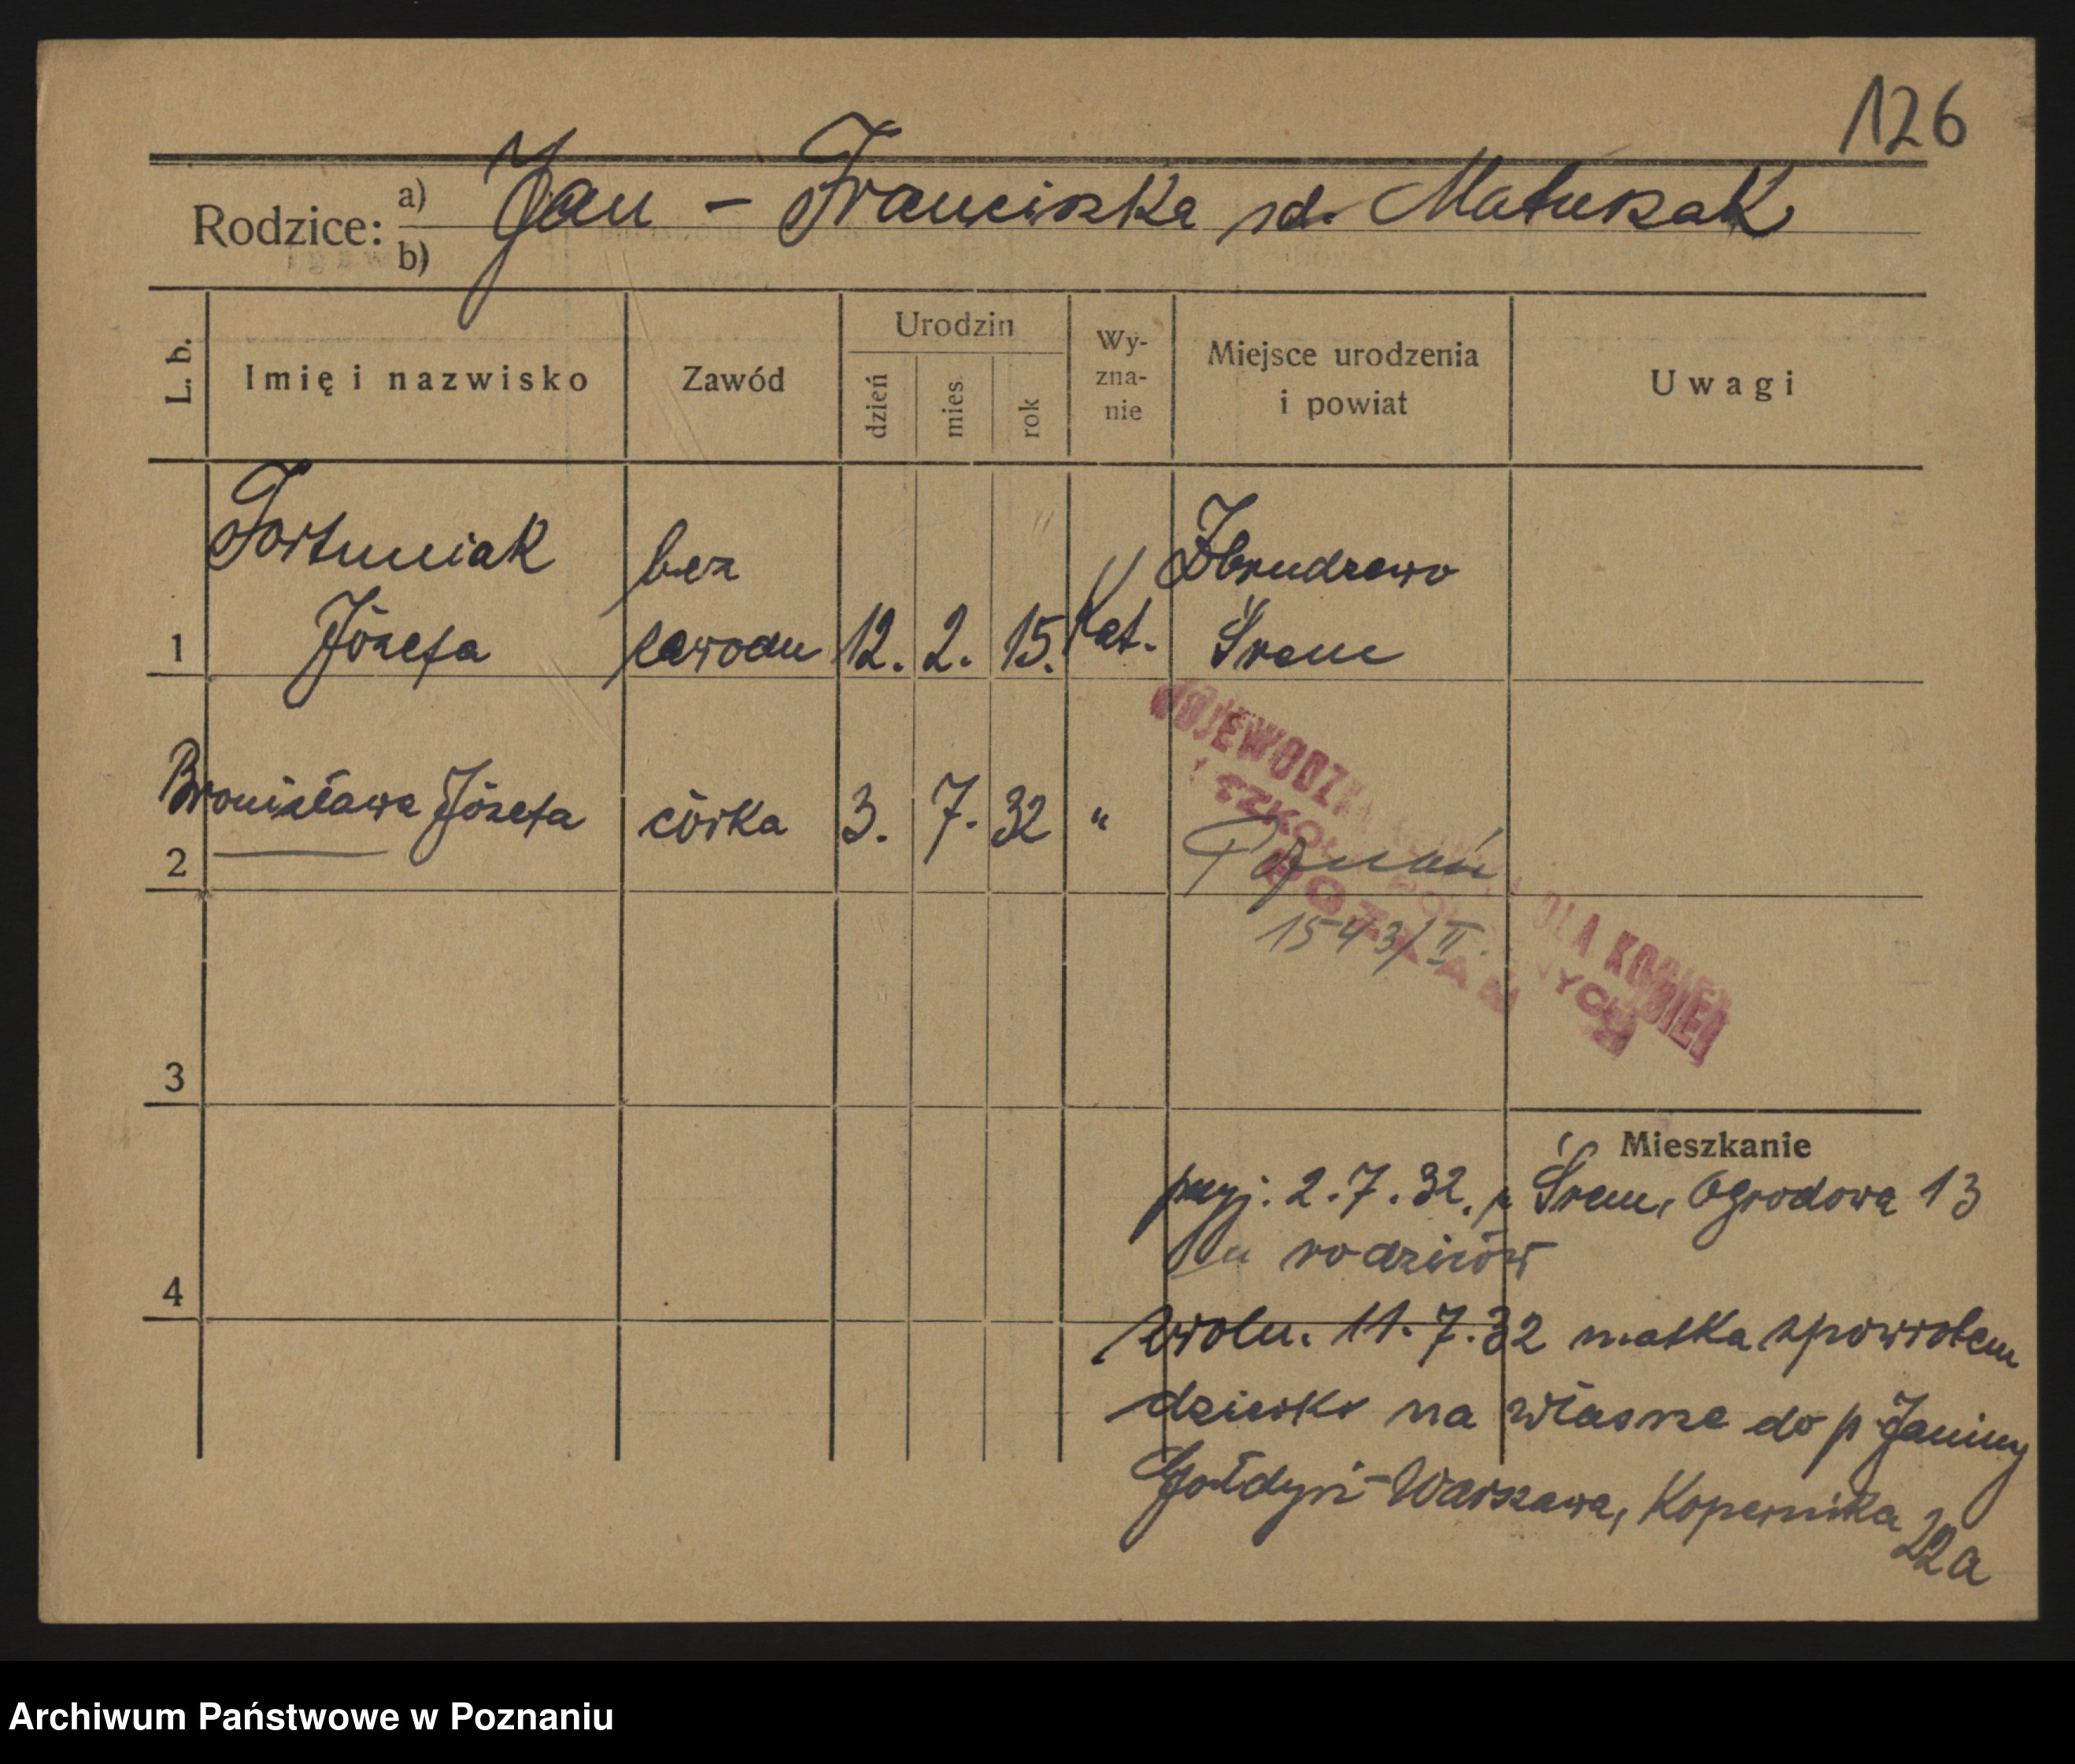 126
Rodzice: a) Jan - Franciszka zd. Matuszak
b)
L. b.
Imię i nazwisko
Zawód
Urodzin
dzień
mies.
rok
Wy-
zna-
nie
Miejsce urodzenia
i powiat
Uwagi
Fortuniak bez Zbrudzewo
1 Józefa zawodu 12. 2. 15. Kat. Śrem
Bronisława Józefa córka 3. 7. 32 " Poznań
2
1543/II.
WOJEWODZKA DLA KOBIET
I SZKOŁA POŁOŻNYCH
POZNAŃ
3
Mieszkanie
przyj. 2.7.32. Śrem, Ogrodowa 13
u rodziców
4
zwoln. 11.7.32 matka spowrotem
dziecko na własne do p Janiny
Gołdyn - Warszawa, Kopernika
22a
Archiwum Państwowe w Poznaniu